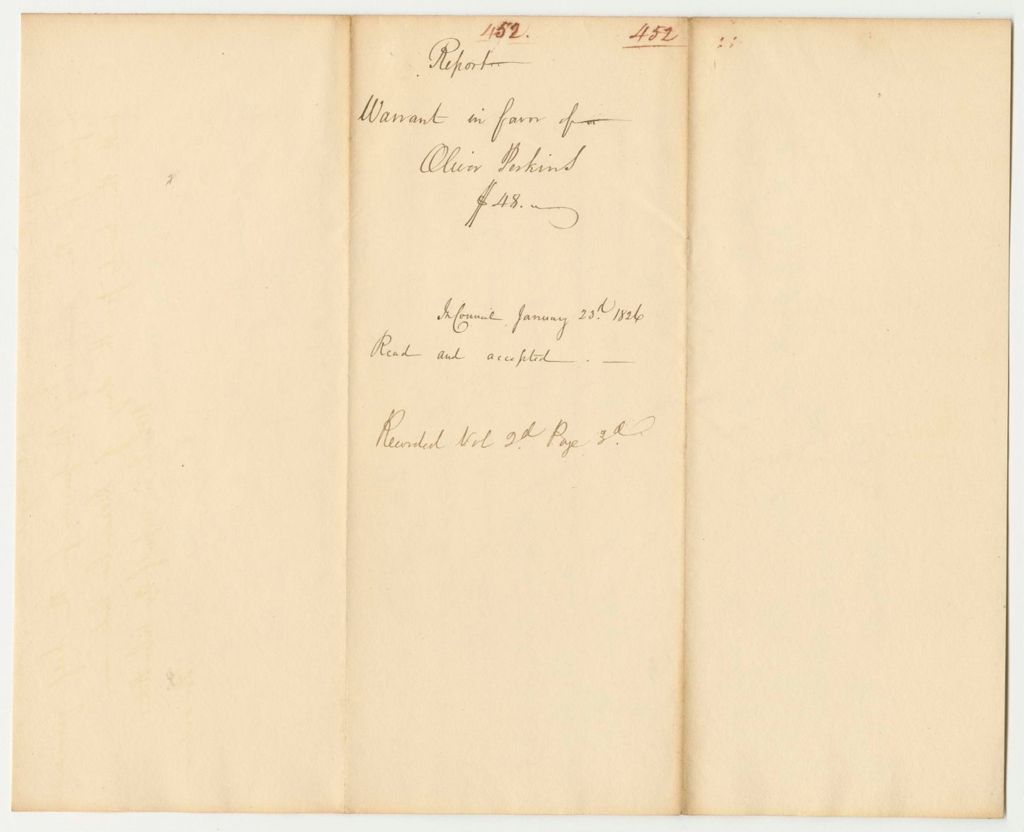 452. 452
Report
Warrant in favor of
Oliver Perkins
$48.
In Council January 23d. 1826
Read and accepted. —
Recorded Vol 2d Page 3d.